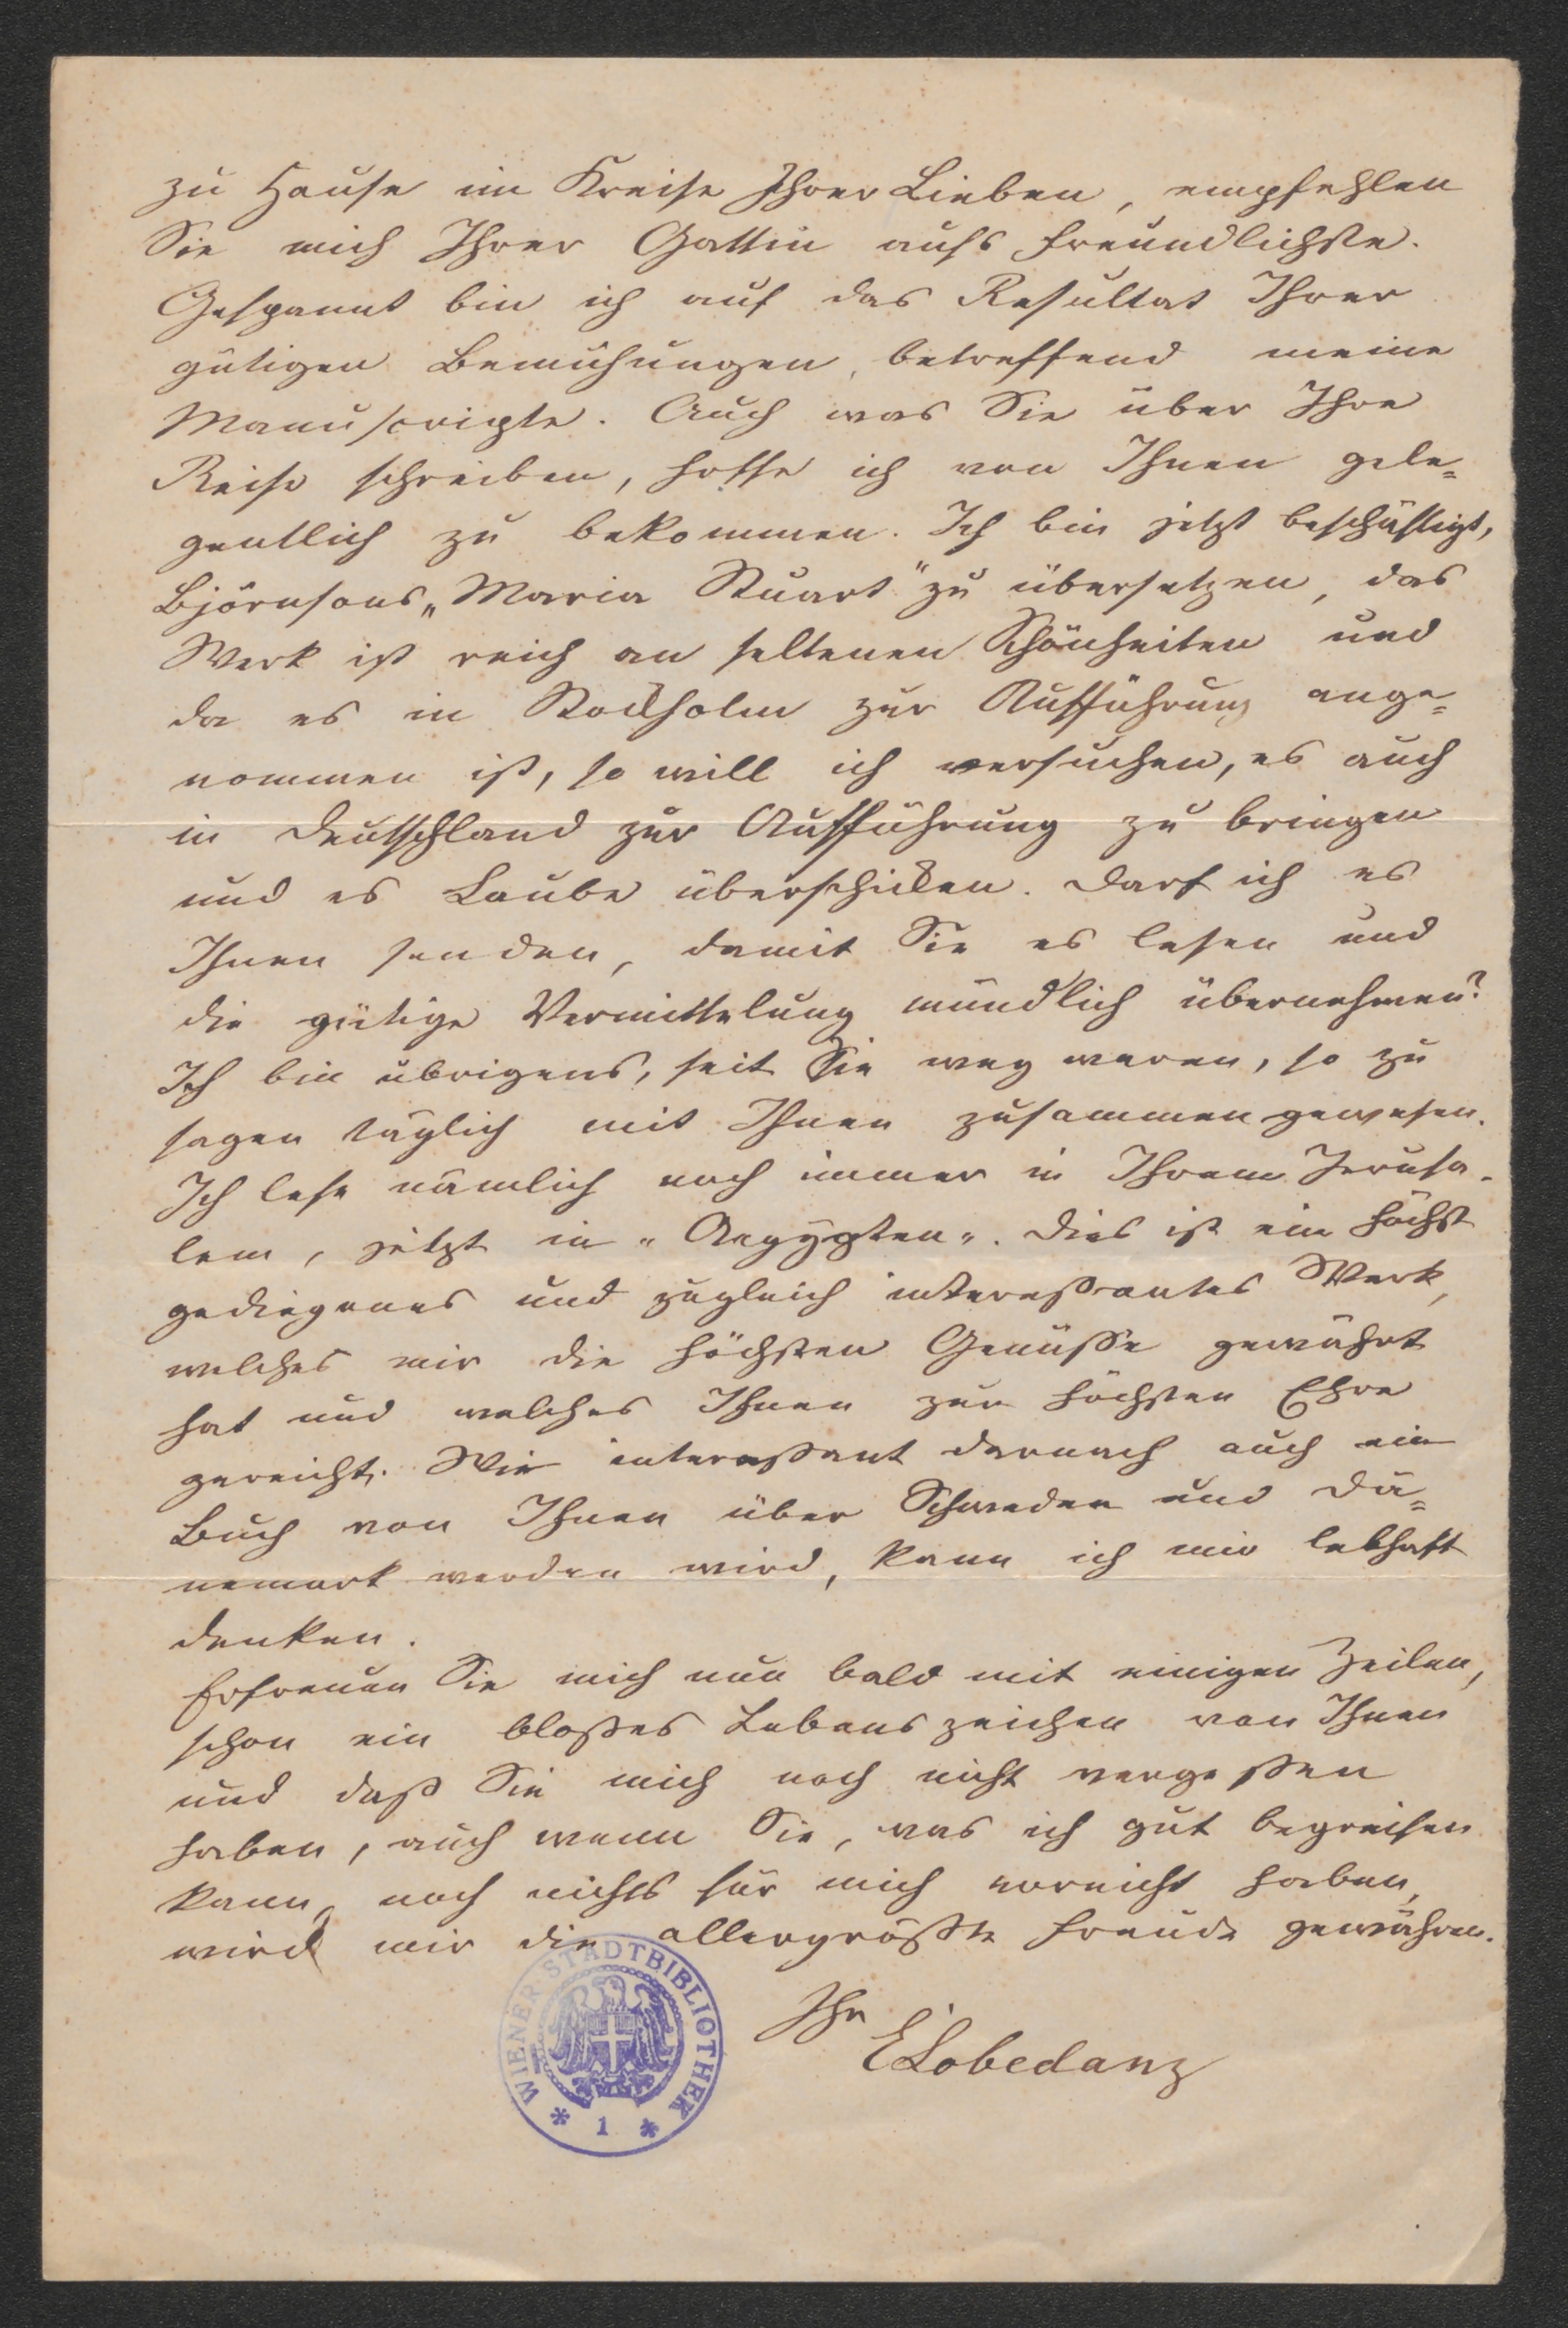 zu Hause im Kreise Ihrer Lieben, empfehlen
Sie mich Ihrer Gattin aufs freundlichste.
Gespannt bin ich auf das Resultat Ihrer
gütigen Bemühungen, betreffend meine
Manuscripte. Auch was Sie über Ihre
Reise schreiben, hoffe ich von Ihnen gele-
gentlich zu bekommen. Ich bin jetzt beschäftigt,
Björnsons „Maria Stuart" zu übersetzen, das
Werk ist reich an seltenen Schönheiten und
da es in Stockholm zur Aufführung ange-
nommen ist, so will ich versuchen, es auch
in Deutschland zur Aufführung zu bringen
und es Laube überschicken. Darf ich es
Ihnen senden, damit Sie es lesen und
die gütige Vermittelung mündlich übernehmen?
Ich bin übrigens, seit Sie weg waren, so zu
sagen täglich mit Ihnen zusammen gewesen.
Ich lese nämlich noch immer in Ihrem Jerusa-
lem, jetzt in „Aegypten". Dies ist ein höchst
gediegenes und zugleich interessantes Werk,
welches mir die höchsten Genüsse gewährt
hat und welches Ihnen zur höchsten Ehre
gereicht. Wie interessant darnach auch ein
Buch von Ihnen über Schweden und Dä-
nemark werden wird, kann ich mir lebhaft
denken.
Erfreuen Sie mich nun bald mit einigen Zeilen,
schon ein bloßes Lebenszeichen von Ihnen
und daß Sie mich noch nicht vergessen
haben, auch wenn Sie, was ich gut begreifen
kann, noch nichts für mich erreicht haben,
wird mir die allergrößte Freude gewähren.
Ihr
E Lobedanz
WIENER STADTBIBLIOTHEK
* 1 *